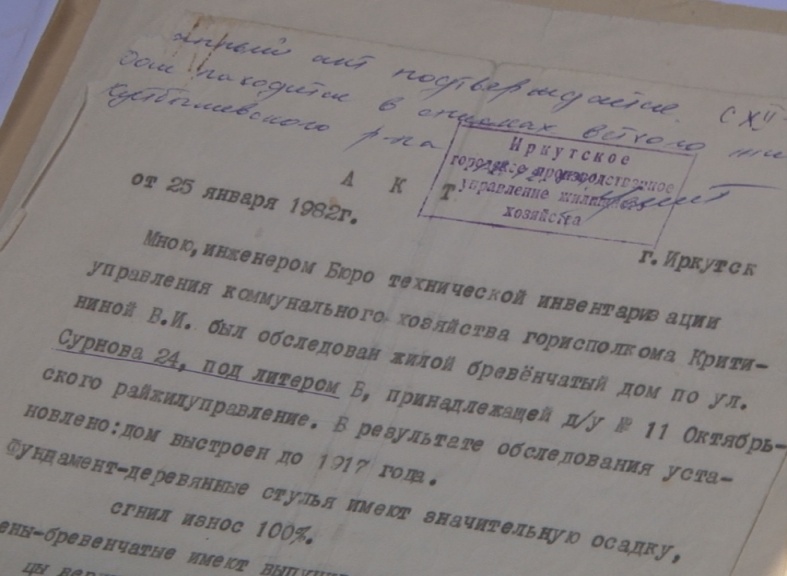 акт подтверждается.
Дом находится в списках ветхого
Куйбышевского р-на
Иркутское
городское производственное
управление жилищного
хозяйства
А К Т
от 25 января 1982г.
г.Иркутск
Мною,инженером Бюро технической инвентаризации
управления коммунального хозяйства горисполкома Крити-
ниной В.И. был обследован жилой бревёнчатый дом по ул.
Сурнова 24, под литером Б, принадлежащей д/у № 11 Октябрь-
ского райжилуправление. В результате обследования уста-
новлено:дом выстроен до 1917 года.
Фундамент-деревянные стулья имеют значительную осадку,
сгнил износ 100%.
ены-бревенчатые имеют